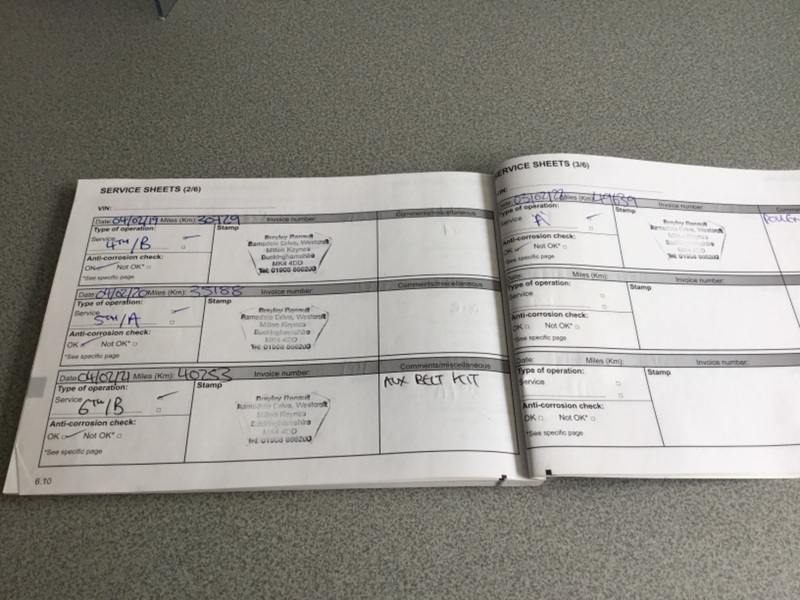 SERVICE SHEETS (2/6)
VIN:
Date: 04/02/19 Miles (Km): 30429 Invoice number: Comments/miscellaneous
Type of operation: Stamp
Service
4TH/B
Anti-corrosion check:
OK Not OK*
*See specific page
Brayley Renault
Ramsdale Drive, Westcroft
Milton Keynes
Buckinghamshire
MK4 4DD
Tel: 01908 886200
Date: 04/02/20 Miles (Km): 35188 Invoice number: Comments/miscellaneous
Type of operation: Stamp
Service
5TH/A
Anti-corrosion check:
OK Not OK*
*See specific page
Brayley Renault
Ramsdale Drive, Westcroft
Milton Keynes
Buckinghamshire
MK4 4DD
Tel: 01908 886200
Date: 04/02/21 Miles (Km): 40253 Invoice number: Comments/miscellaneous
Type of operation: Stamp
Service
6TH/B
Anti-corrosion check:
OK Not OK*
*See specific page
Brayley Renault
Ramsdale Drive, Westcroft
Milton Keynes
Buckinghamshire
MK4 4DD
Tel: 01908 886200
AUX BELT KIT
6.10
SERVICE SHEETS (3/6)
VIN:
Date: 03/02/22 Miles (Km): 49639 Invoice number:
Type of operation: Stamp
Service
A
Anti-corrosion check:
OK Not OK*
*See specific page
Brayley Renault
Ramsdale Drive, Westcroft
Milton Keynes
Buckinghamshire
MK4 4DD
Tel: 01908 886200
Date: Miles (Km): Invoice number:
Type of operation: Stamp
Service
Anti-corrosion check:
OK Not OK*
*See specific page
Date: Miles (Km): Invoice number:
Type of operation: Stamp
Service
Anti-corrosion check:
OK Not OK*
*See specific page